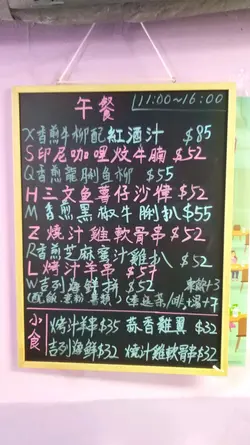 午餐 11:00~16:00
X香煎牛柳配紅酒汁 $85
S印尼咖哩炆牛腩 $52
Q香煎龍脷魚柳 $55
H三文鱼薯仔沙律 $52
M香煎黑椒牛脷扒 $55
Z燒汁雞軟骨串 $52
R香煎芝麻蜜汁雞扒 $52
L烤汁羊串 $57
W吉列海鮮拼 $52
+3
+7
小食
烤汁羊串$35 蒜香雞翼 $32
吉列海鮮$32 燒汁雞軟骨串$32